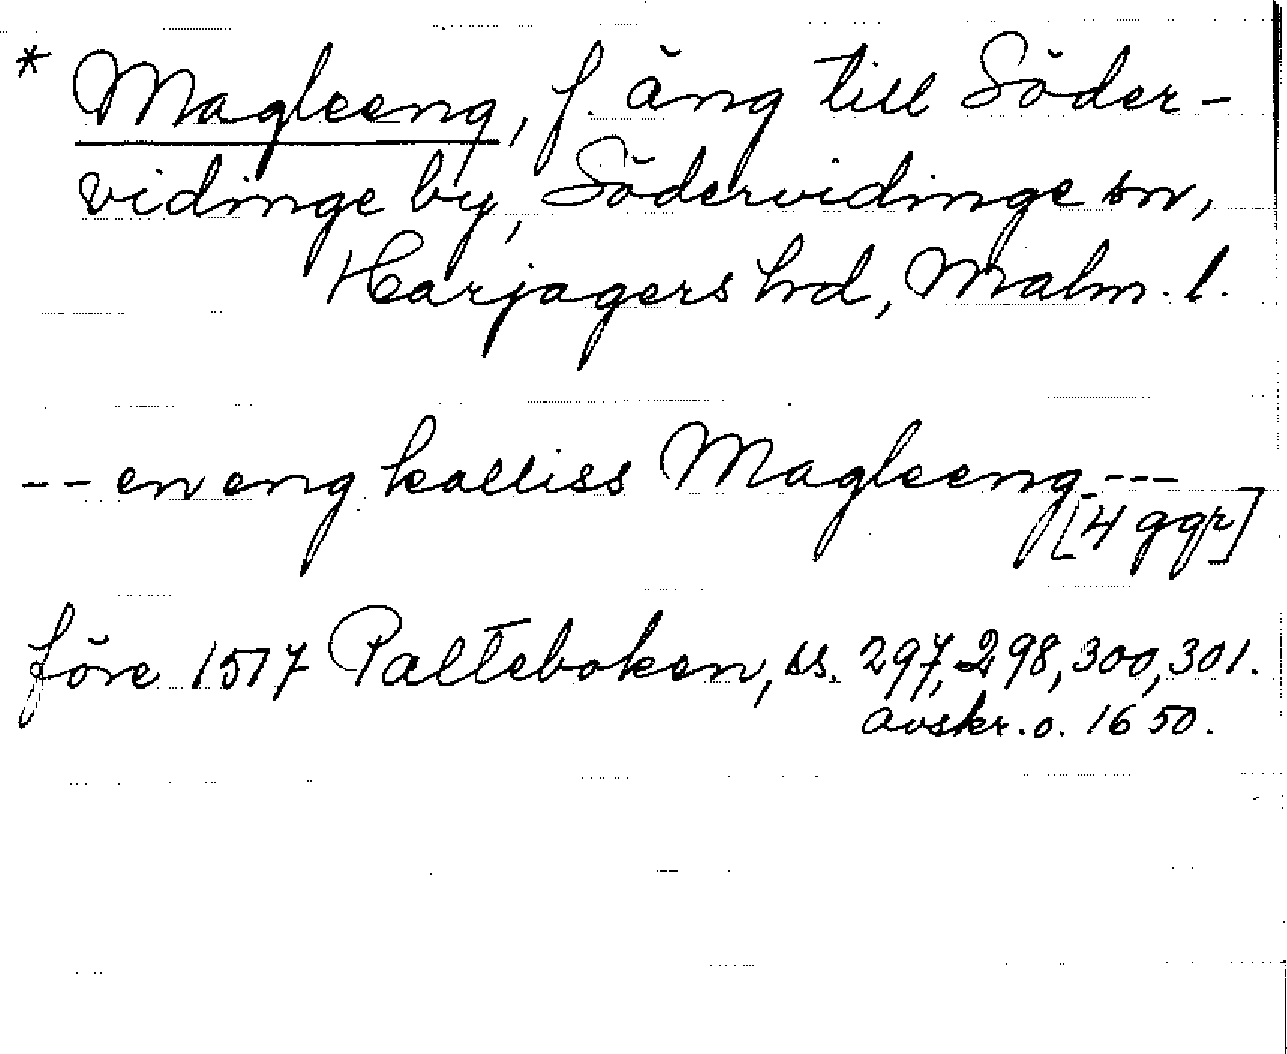 * Magleeng, f. äng till Söder-
vidinge by, Södervidinge sn,
Harjagers hd, Malm. l.
-- en eng kalliss Magleeng ---
[4 ggr]
före 1517 Palteboken, ss. 297, 298, 300, 301.
avskr. o. 1650.